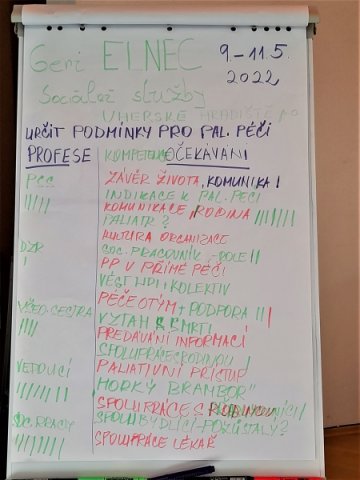 Geri ELNEC 9-11.5.
2022
Sociální služby
UHERSKÉ HRADIŠTĚ
URČIT PODMÍNKY PRO PAL. PÉČI
PROFESE KOMPETENCE OČEKÁVÁNÍ
ZÁVĚR ŽIVOTA, KOMUNIKA I
INDIKACE K PAL. PÉČI
IIIII KOMUNIKACE, RODINA IIIIIII
PALIATR?
KULTURA ORGANIZACE
DZR SOC. PRACOVNÍK - ROLE II
I PP V PŘÍMÉ PÉČI
VÉST LIDI, KOLEKTIV
PÉČE O TÝM + PODPORA III
VŠEO. SESTRA VZTAH K SMRTI
IIII PŘEDÁVÁNÍ INFORMACÍ
SPOLUPRÁCE S RODINOU I
VEDOUCÍ PALIATIVNÍ PŘÍSTUP
IIIIIII "HORKÝ BRAMBOR"
SPOLUPRÁCE S
SOC. PRAC. SPOLUBYDLÍCÍ - POZŮSTALÝ?
IIIIIIII SPOLUPRÁCE LÉKAŘ